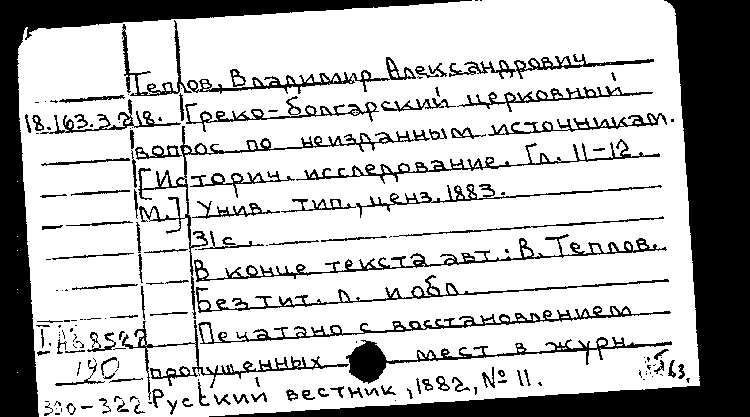 Теплов, Владимир Александрович
18.163.3.218. Греко-болгарский церковный
вопрос по неизданным источникам.
[Историч. исследование. Гл. 11-12.
М.], Унив. тип., ценз. 1883.
31 с.
В конце текста авт.: В. Теплов.
Без тит. л. и обл.
I. АЗ 8522 Печатано с восстановлением
190 пропущенных мест в журн.
300-322 Русский вестник, 1882, № 11.
63.